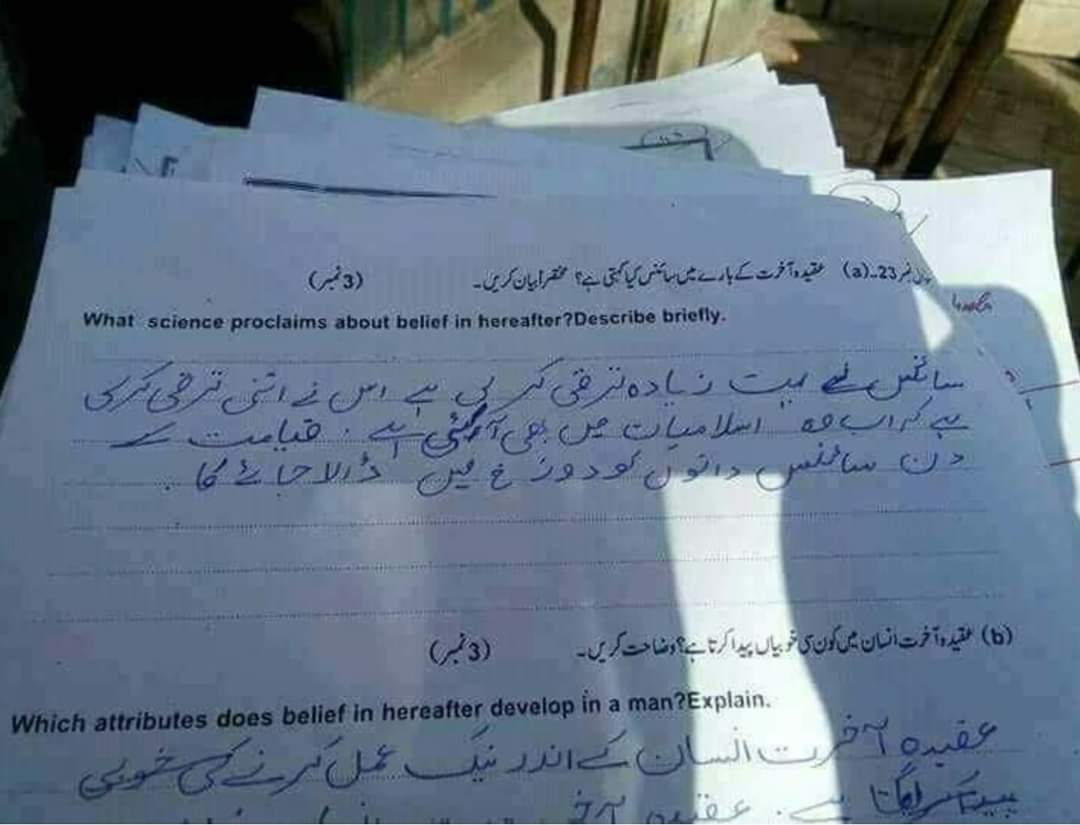 سوال نمبر 23۔(a) عقیدہ آخرت کے بارے میں سائنس کیا کہتی ہے؟ مختصراً بیان کریں۔ (3 نمبر)
What science proclaims about belief in hereafter?Describe briefly.
سائنس نے بہت زیادہ ترقی کر لی ہے اس نے اتنی ترقی کرلی
ہے کہ اب وہ اسلامیات میں بھی آ گئی ہے . قیامت کے
دن سائنس دانوں کو دوزخ میں ڈالا جائے گا .
(b) عقیدہ آخرت انسان میں کون سی خوبیاں پیدا کرتا ہے؟ وضاحت کریں۔ (3 نمبر)
Which attributes does belief in hereafter develop in a man?Explain.
عقیدہ آخرت انسان کے اندر نیک عمل کرنے کی خوبی
ہے . عقیدہ